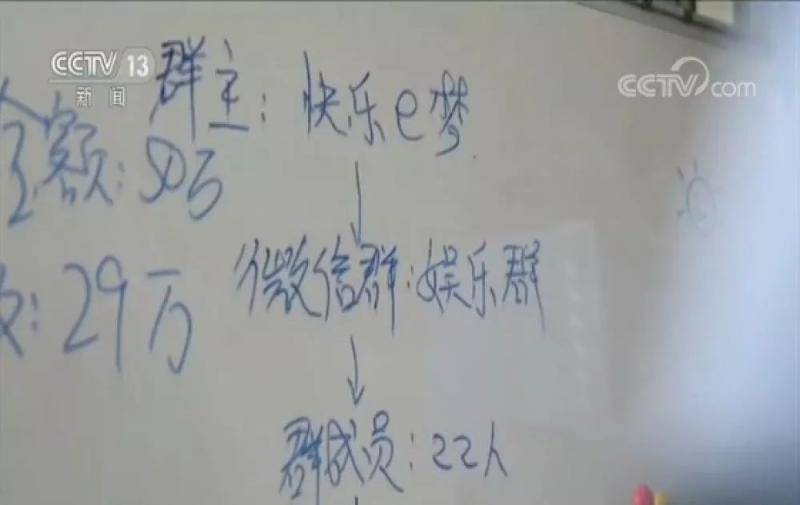 CCTV 13
新闻
CCTV.com
群主：快乐e梦
金额：50万
微信群：娱乐群
：29万
群成员：22人